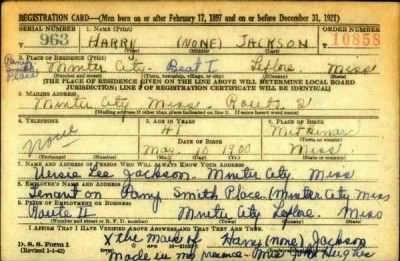 REGISTRATION CARD—(Men born on or after February 17, 1897 and on or before December 31, 1921)
SERIAL NUMBER 1. NAME (Print) ORDER NUMBER
963 HARRI (NONE) JACKSON 10858
(First) (Middle) (Last)
2. PLACE OF RESIDENCE (Print)
Minter City Beat I Leflore Miss
(Number and street) (Town, township, village, or city) (County) (State)
[THE PLACE OF RESIDENCE GIVEN ON THE LINE ABOVE WILL DETERMINE LOCAL BOARD
JURISDICTION; LINE 2 OF REGISTRATION CERTIFICATE WILL BE IDENTICAL]
3. MAILING ADDRESS
Minter City Miss. Route 2
(Mailing address if other than place indicated on line 2. If same insert word same)
4. TELEPHONE 5. AGE IN YEARS 6. PLACE OF BIRTH
None 41
DATE OF BIRTH (Town or county)
May 10 1900 Miss.
(Mo.) (Day) (Yr.) (State or country)
7. NAME AND ADDRESS OF PERSON WHO WILL ALWAYS KNOW YOUR ADDRESS
Lee Jackson. Minter City Miss
8. EMPLOYER'S NAME AND ADDRESS
Tenant on Smith Place. (Minter City Miss
9. PLACE OF EMPLOYMENT OR BUSINESS
Route II Minter City Leflore Miss
(Number and street or R. F. D. number) (Town) (County) (State)
I AFFIRM THAT I HAVE VERIFIED ABOVE ANSWERS AND THAT THEY ARE TRUE.
D. S. S. Form 1 X the mark of Harry (none) Jackson
(Revised 1-1-42) Made in my presence - Mrs